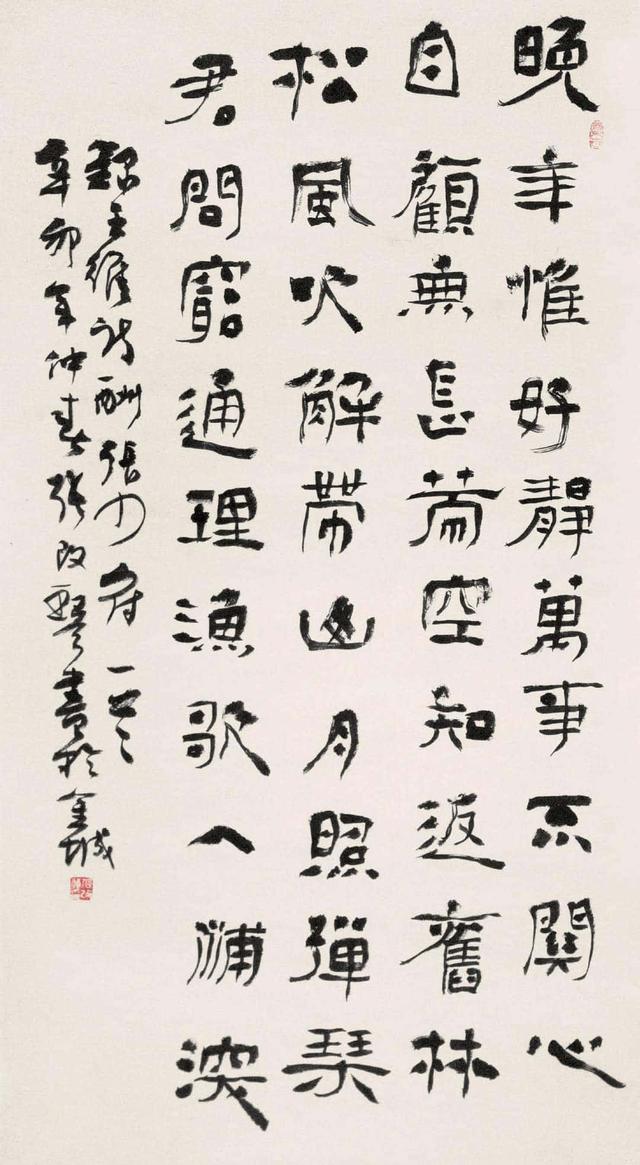 晚年惟好靜萬事不關心
自顧無長策空知返舊林
松風吹解帶山月照彈琴
君問窮通理漁歌入浦深
錄王維詩酬張少府一首
辛卯年仲春張改琴書於金城